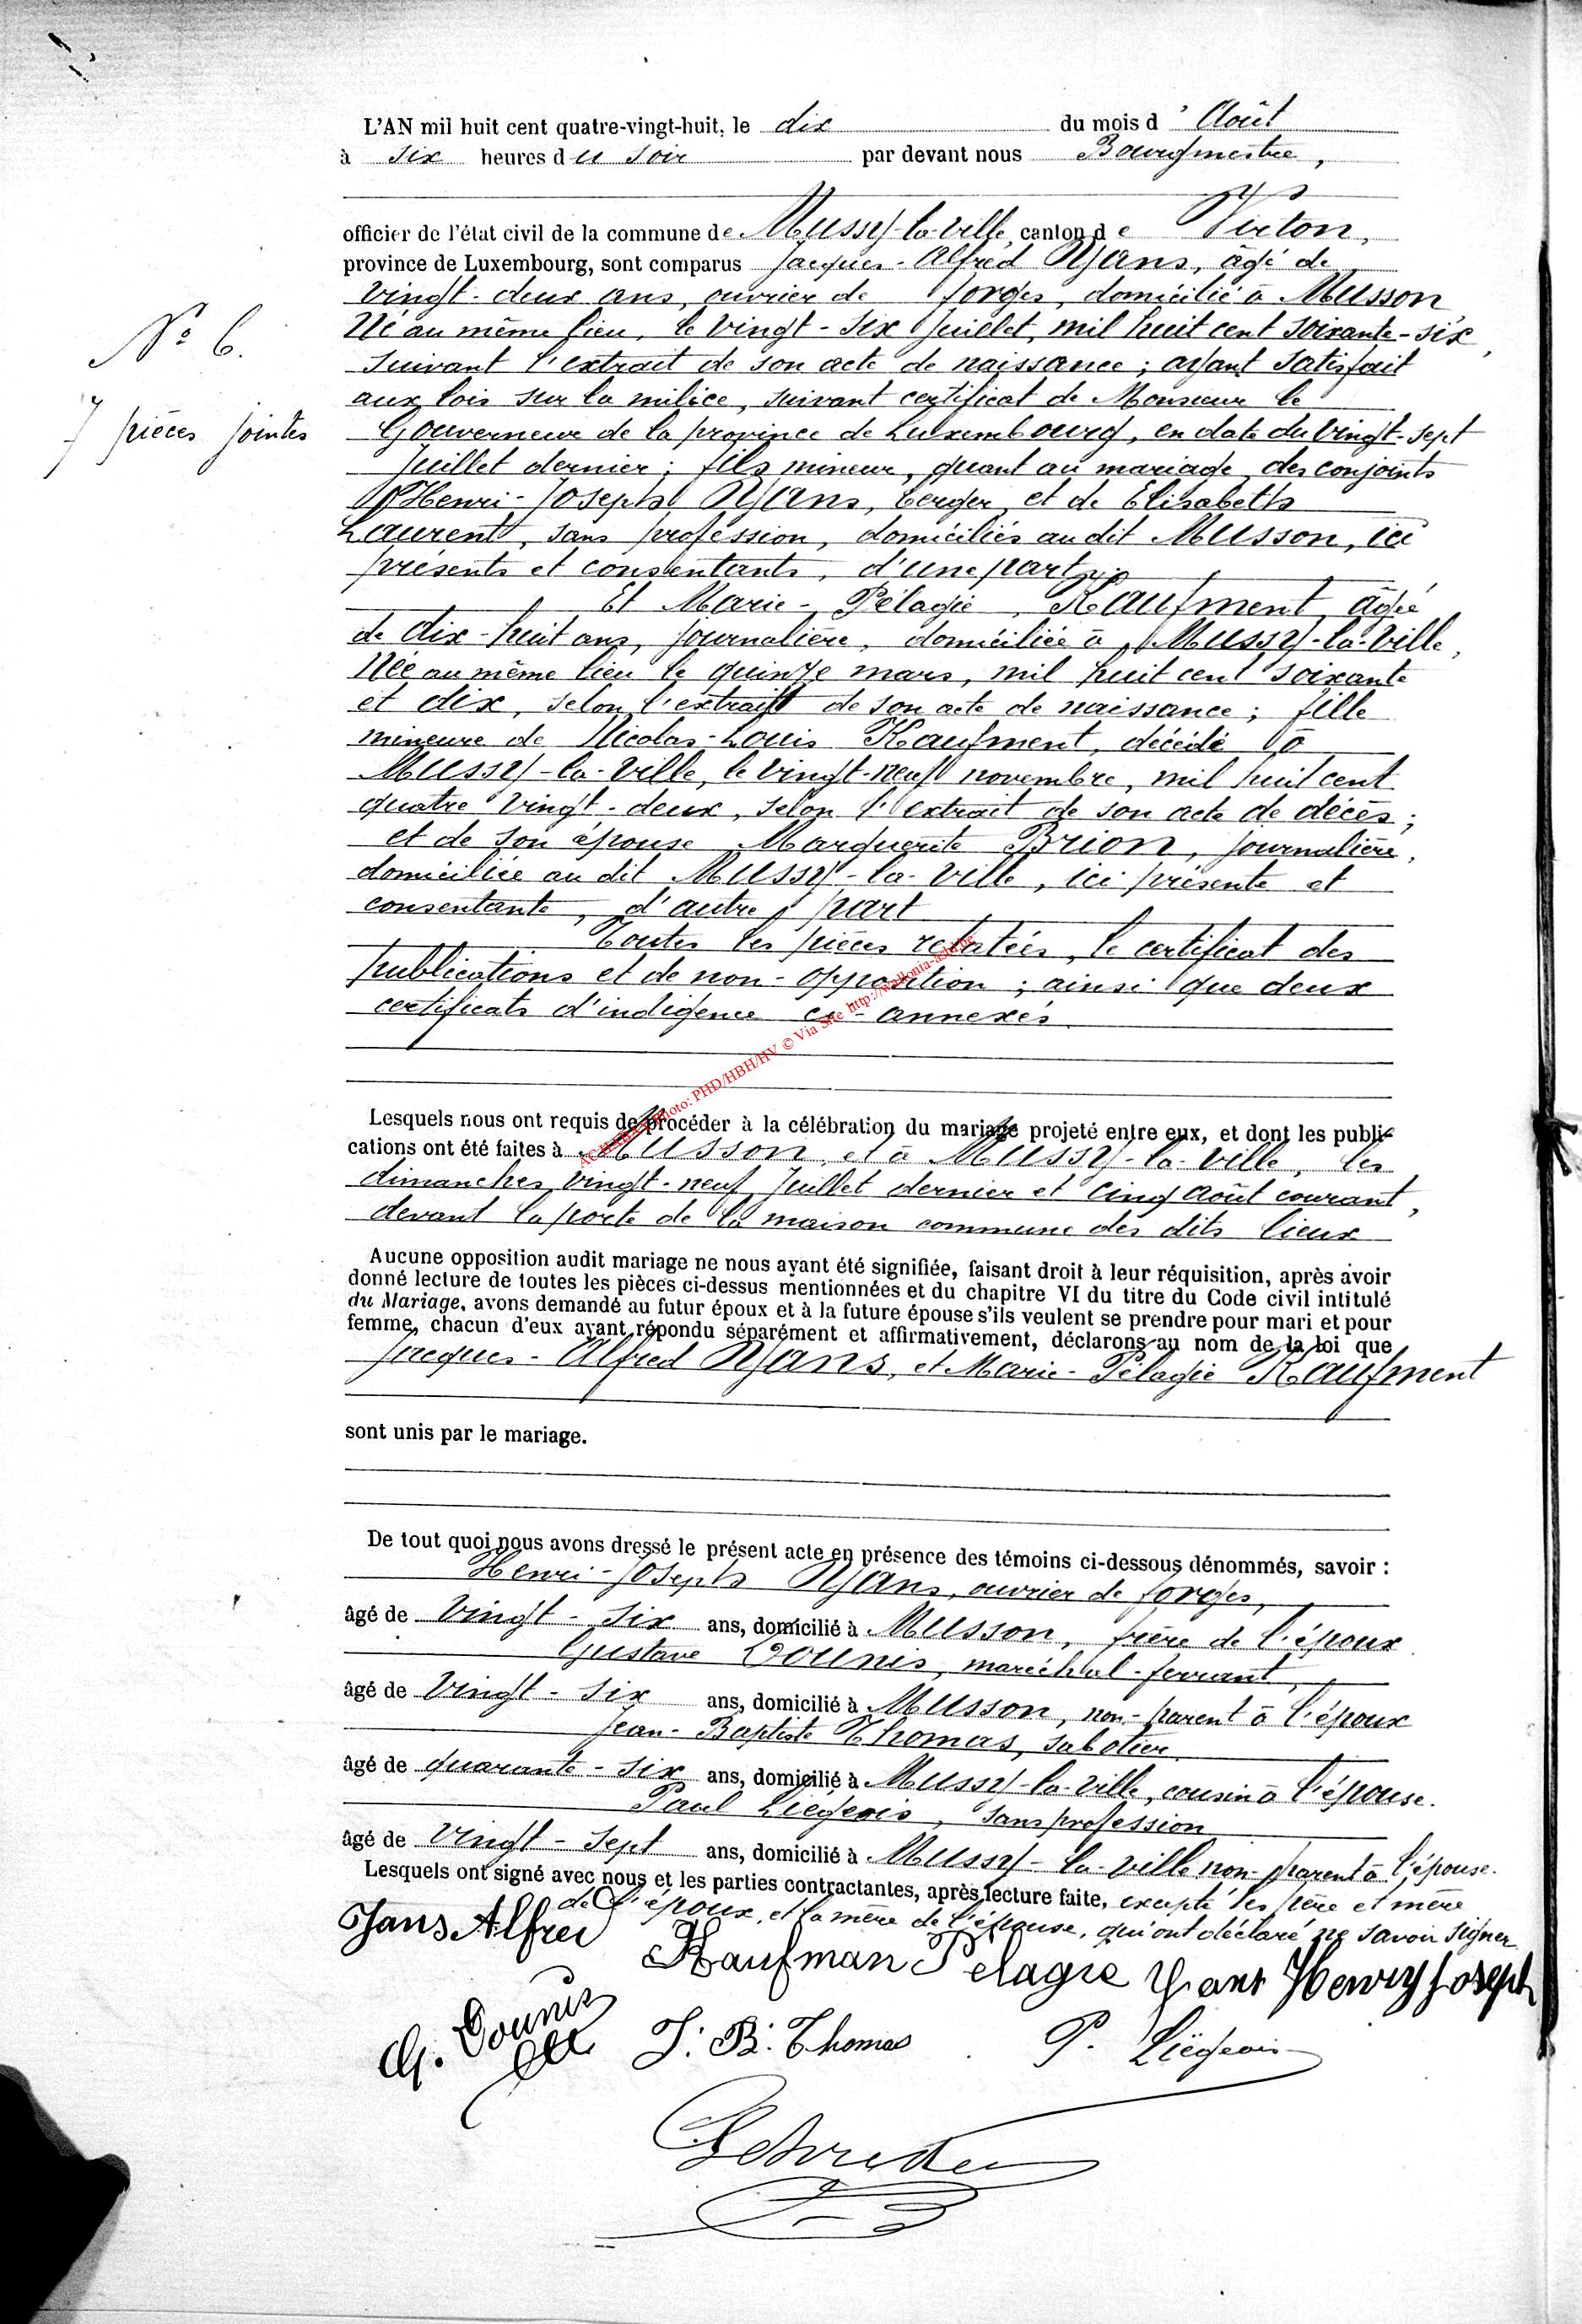 L'AN mil huit cent quatre-vingt-huit, le dix du mois d'Août
à six heures du soir par devant nous Bourgmestre,
officier de l'état civil de la commune de Mussy-la-ville, canton de Virton,
province de Luxembourg, sont comparus Jacques-Alfred Yans, âgé de
vingt-deux ans, ouvrier de forges, domicilié à Musson
Né au même lieu, le vingt-six Juillet, mil huit cent soixante-six,
N° 6.
suivant l'extrait de son acte de naissance; ayant satisfait
aux lois sur la milice, suivant certificat de Monsieur le
7 pièces jointes
Gouverneur de la province de Luxembourg, en date du vingt-sept
Juillet dernier; fils mineur, quant au mariage, des conjoints
Henri-Joseph Yans, berger, et de Elisabeth
Laurent, sans profession, domiciliés au dit Musson, ici
présents et consentants, d'une part
Et Marie-Pélagie Kaufment, âgée
de dix-huit ans, journalière, domiciliée à Mussy-la-ville,
Née au même lieu le quinze mars, mil huit cent soixante
et dix, selon l'extrait de son acte de naissance; fille
mineure de Nicolas-Louis Kaufment, décédé à
Mussy-la-Ville, le vingt-neuf novembre, mil huit cent
quatre vingt-deux, selon l'extrait de son acte de décès;
et de son épouse Marguerite Brion, journalière,
domiciliée au dit Mussy-la-Ville, ici présente et
consentante, d'autre part
Toutes les pièces relatées, le certificat des
publications et de non-opposition; ainsi que deux
certificats d'indigence ci-annexés.
Photo: PHD/HBH/HV © Via Site http://wallonia-asbl.be
Lesquels nous ont requis de procéder à la célébration du mariage projeté entre eux, et dont les publi-
cations ont été faites à Musson, et à Mussy-la-Ville, les
dimanches vingt-neuf Juillet dernier et cinq août courant,
devant la porte de la maison commune des dits lieux
Aucune opposition audit mariage ne nous ayant été signifiée, faisant droit à leur réquisition, après avoir
donné lecture de toutes les pièces ci-dessus mentionnées et du chapitre VI du titre du Code civil intitulé
du Mariage, avons demandé au futur époux et à la future épouse s'ils veulent se prendre pour mari et pour
femme, chacun d'eux ayant répondu séparément et affirmativement, déclarons au nom de la loi que
Jacques-Alfred Yans, et Marie-Pélagie Kaufment
sont unis par le mariage.
De tout quoi nous avons dressé le présent acte en présence des témoins ci-dessous dénommés, savoir :
Henri-Joseph Yans, ouvrier de forges,
âgé de vingt-six ans, domicilié à Musson, frère de l'époux
Gustave Dounis, maréchal-ferrant,
âgé de vingt-six ans, domicilié à Musson, non-parent à l'époux
Jean-Baptiste Thomas, sabotier
âgé de quarante-six ans, domicilié à Mussy-la-Ville, cousin à l'épouse.
Paul Liégeois, sans profession
âgé de vingt-sept ans, domicilié à Mussy-la-ville non-parent à l'épouse.
Lesquels ont signé avec nous et les parties contractantes, après lecture faite, excepté les père et mère
de l'époux, et la mère de l'épouse, qui ont déclaré ne savoir signer
Yans Alfred
Kaufman Pélagie Yans Henry Joseph
G. Dounis J. B. Thomas P. Liégeois